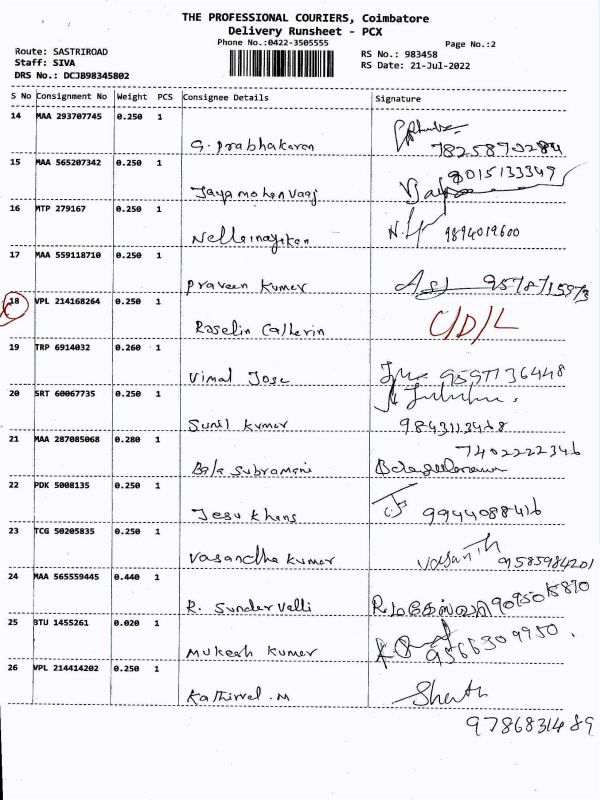 THE PROFESSIONAL COURIERS, Coimbatore
Delivery Runsheet - PCX
Phone No.:0422-3505555
Page No.:2
Route: SASTRIROAD
Staff: SIVA
DRS No.: DCJB98345802
RS No.: 983458
RS Date: 21-Jul-2022
S No Consignment No Weight PCS Consignee Details Signature
14 MAA 293707745 0.250 1 G. Prabhakaran 7825870284
15 MAA 565207342 0.250 1 Jayamohanvaaj 8015133349
16 MTP 279167 0.250 1 Nellainayiken 9894019600
17 MAA 559118710 0.250 1 Praveen Kumar 9578715973
18 VPL 214168264 0.250 1 Roselin Catherin C/D/L
19 TRP 6914032 0.260 1 Vimal Jose 9597736448
20 SRT 60067735 0.250 1 Sunil Kumar 9843113468
21 MAA 287085068 0.280 1 Bala Subramani 7402222346
22 PDK 5008135 0.250 1 Jesu Khans 9944088416
23 TCG 50205835 0.250 1 Vasandha Kumar Vasanth 9585984201
24 MAA 565559445 0.440 1 R. Sunder Valli R. மகேஸ்வரி 9095015890
25 BTU 1455261 0.020 1 Mukesh Kumar 9566309950.
26 VPL 214414202 0.250 1 Kathirvel.M
9786831489